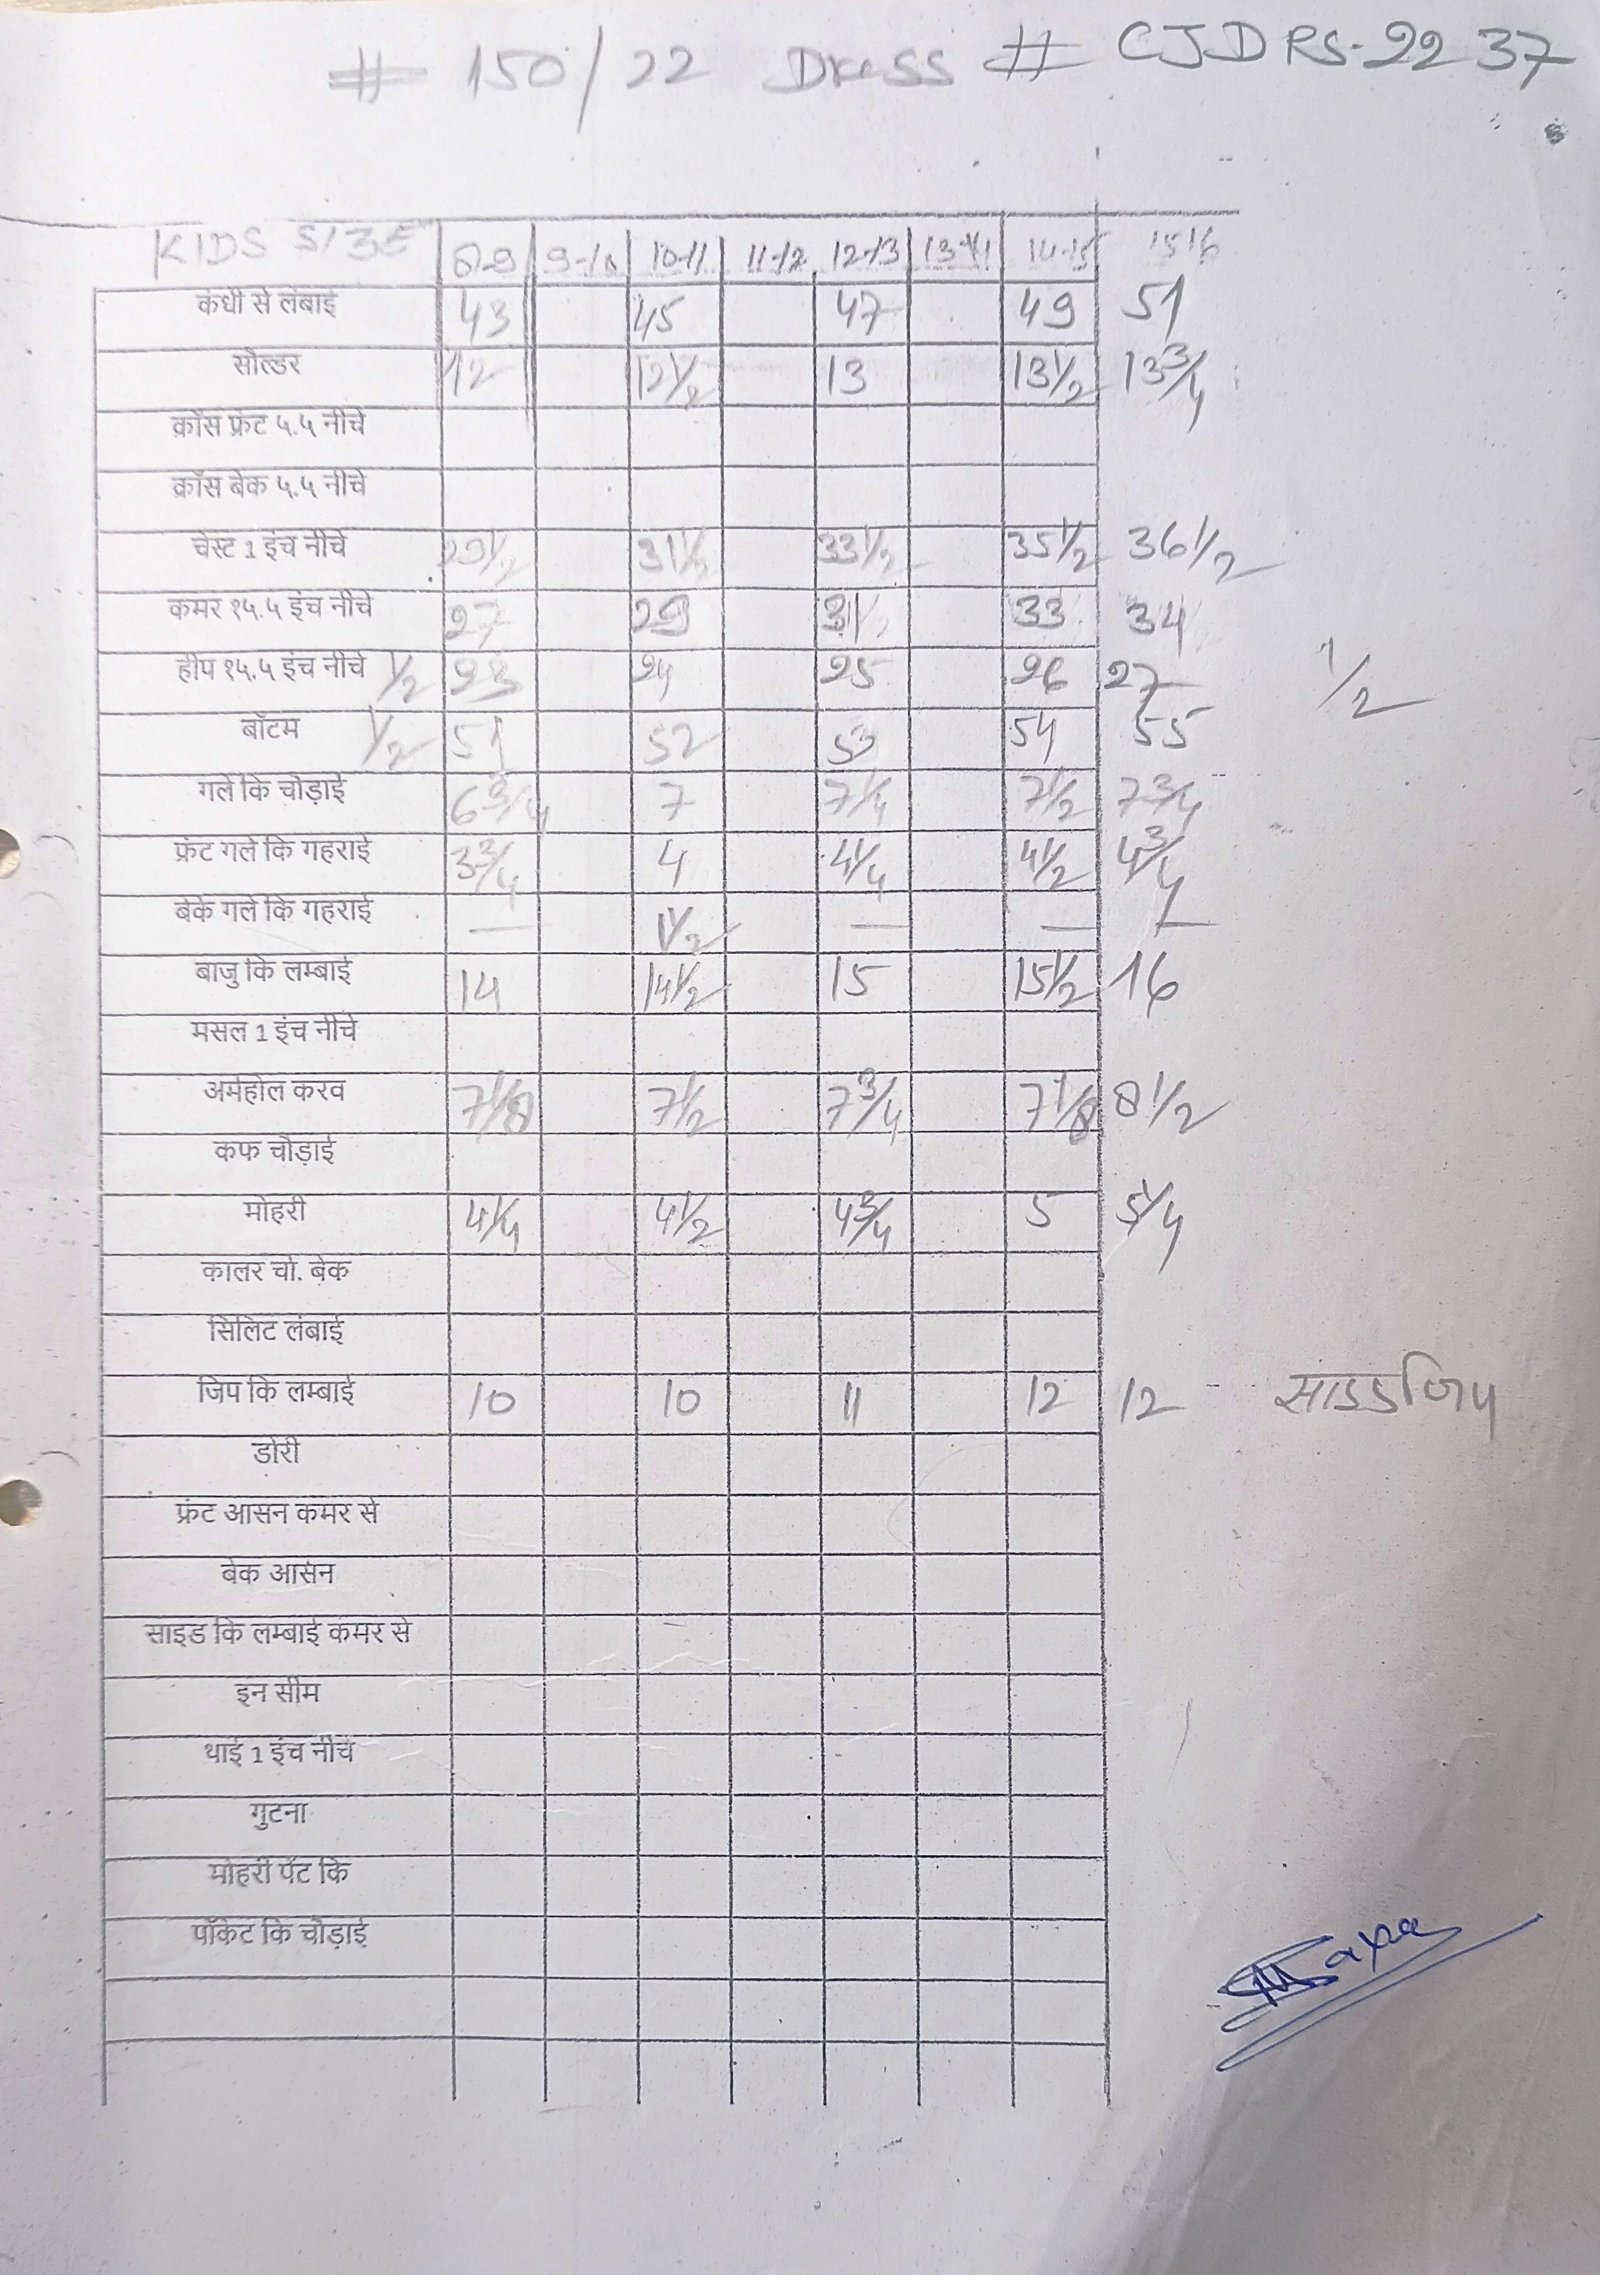 # 150/22 Dress # CJDRS-2237
KIDS SIZE 8-9 9-10 10-11 11-12 12-13 13-14 14-15 15 16
कंधी से लंबाई 43 45 47 49 51
सोल्डर 12 12 1/2 13 13 1/2 13 3/4
क्रॉस फ्रंट ५.५ नीचे
क्रॉस बेक ५.५ नीचे
चेस्ट 1 इंच नीचे 29 1/2 31 1/2 33 1/2 35 1/2 36 1/2
कमर १५.५ इंच नीचे 27 29 31 33 34
हीप १५.५ इंच नीचे 1/2 23 24 25 26 27 1/2
बॉटम 1/2 51 52 53 54 55
गले कि चौड़ाई 6 3/4 7 7 1/4 7 1/2 7 3/4
फ्रंट गले कि गहराई 3 3/4 4 4 1/4 4 1/2 4 3/4
बेक गले कि गहराई — 1 1/2 — — —
बाजु कि लम्बाई 14 14 1/2 15 15 1/2 16
मसल 1 इंच नीचे
अर्महोल करव 7 1/8 7 1/2 7 3/4 7 1/8 8 1/2
कफ चौड़ाई
मोहरी 4 1/4 4 1/2 4 3/4 5 5 1/4
कालर चो. बेक
सिलिट लंबाई
जिप कि लम्बाई 10 10 11 12 12 साइडजिप
डोरी
फ्रंट आसन कमर से
बेक आसन
साइड कि लम्बाई कमर से
इन सीम
थाई 1 इंच नीचे
गुटना
मोहरी पेंट कि
पॉकेट कि चौड़ाई